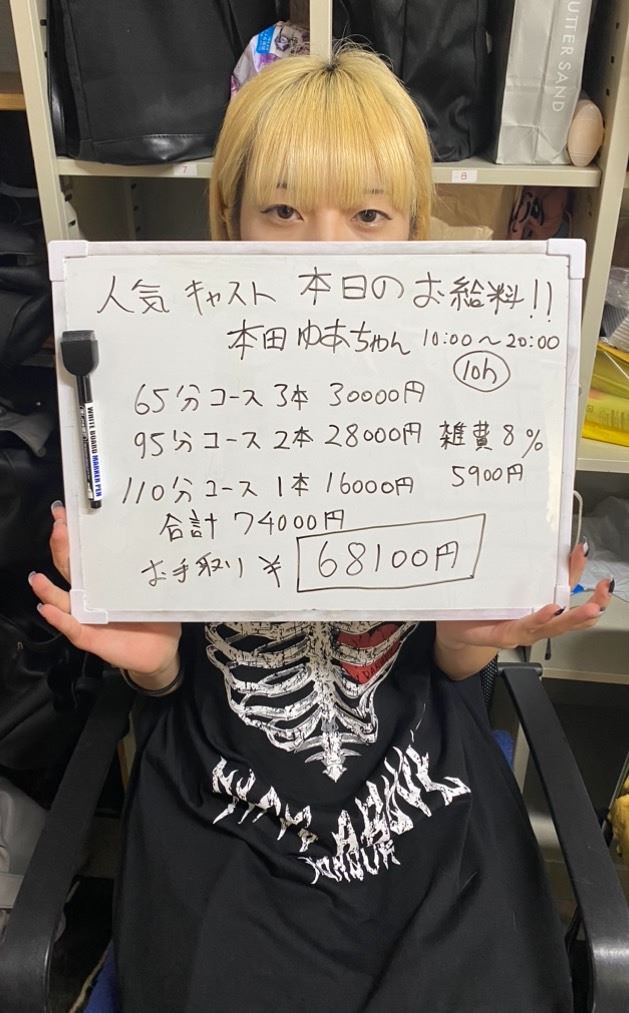 BUTTER SAND
7
8
人気 キャスト 本日の お給料!!
本田ゆあちゃん 10:00〜20:00
10h
65分コース 3本 30000円
95分コース 2本 28000円 雑費 8%
110分コース 1本 16000円 5900円
合計 74000円
お手取り ¥ 68100円
WHITE BOARD MARKER PEN